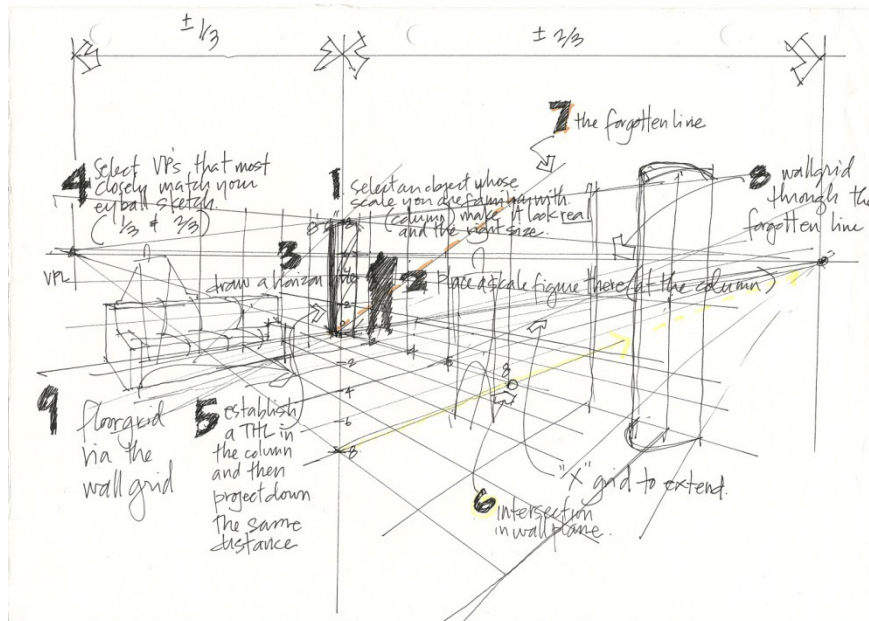 ± 1/3
± 2/3
7 the forgotten line
4 Select VP's that most
closely match your
eyball sketch.
( 1/3 & 2/3 )
1. Select an object whose
scale you are familiar with.
(column) make it look real
and the right size.
8 wallgrid
through the
forgotten line
VPL
3
draw a horizon line
2 Place a scale figure there (at the column)
9 floorgrid
via the
wall grid
5 establish
a THL in
the column
and then
project down
the same
distance
2
4
6
8
-2
-4
-6
-8
8
6 intersection
in wall plane.
"X" grid to extend.